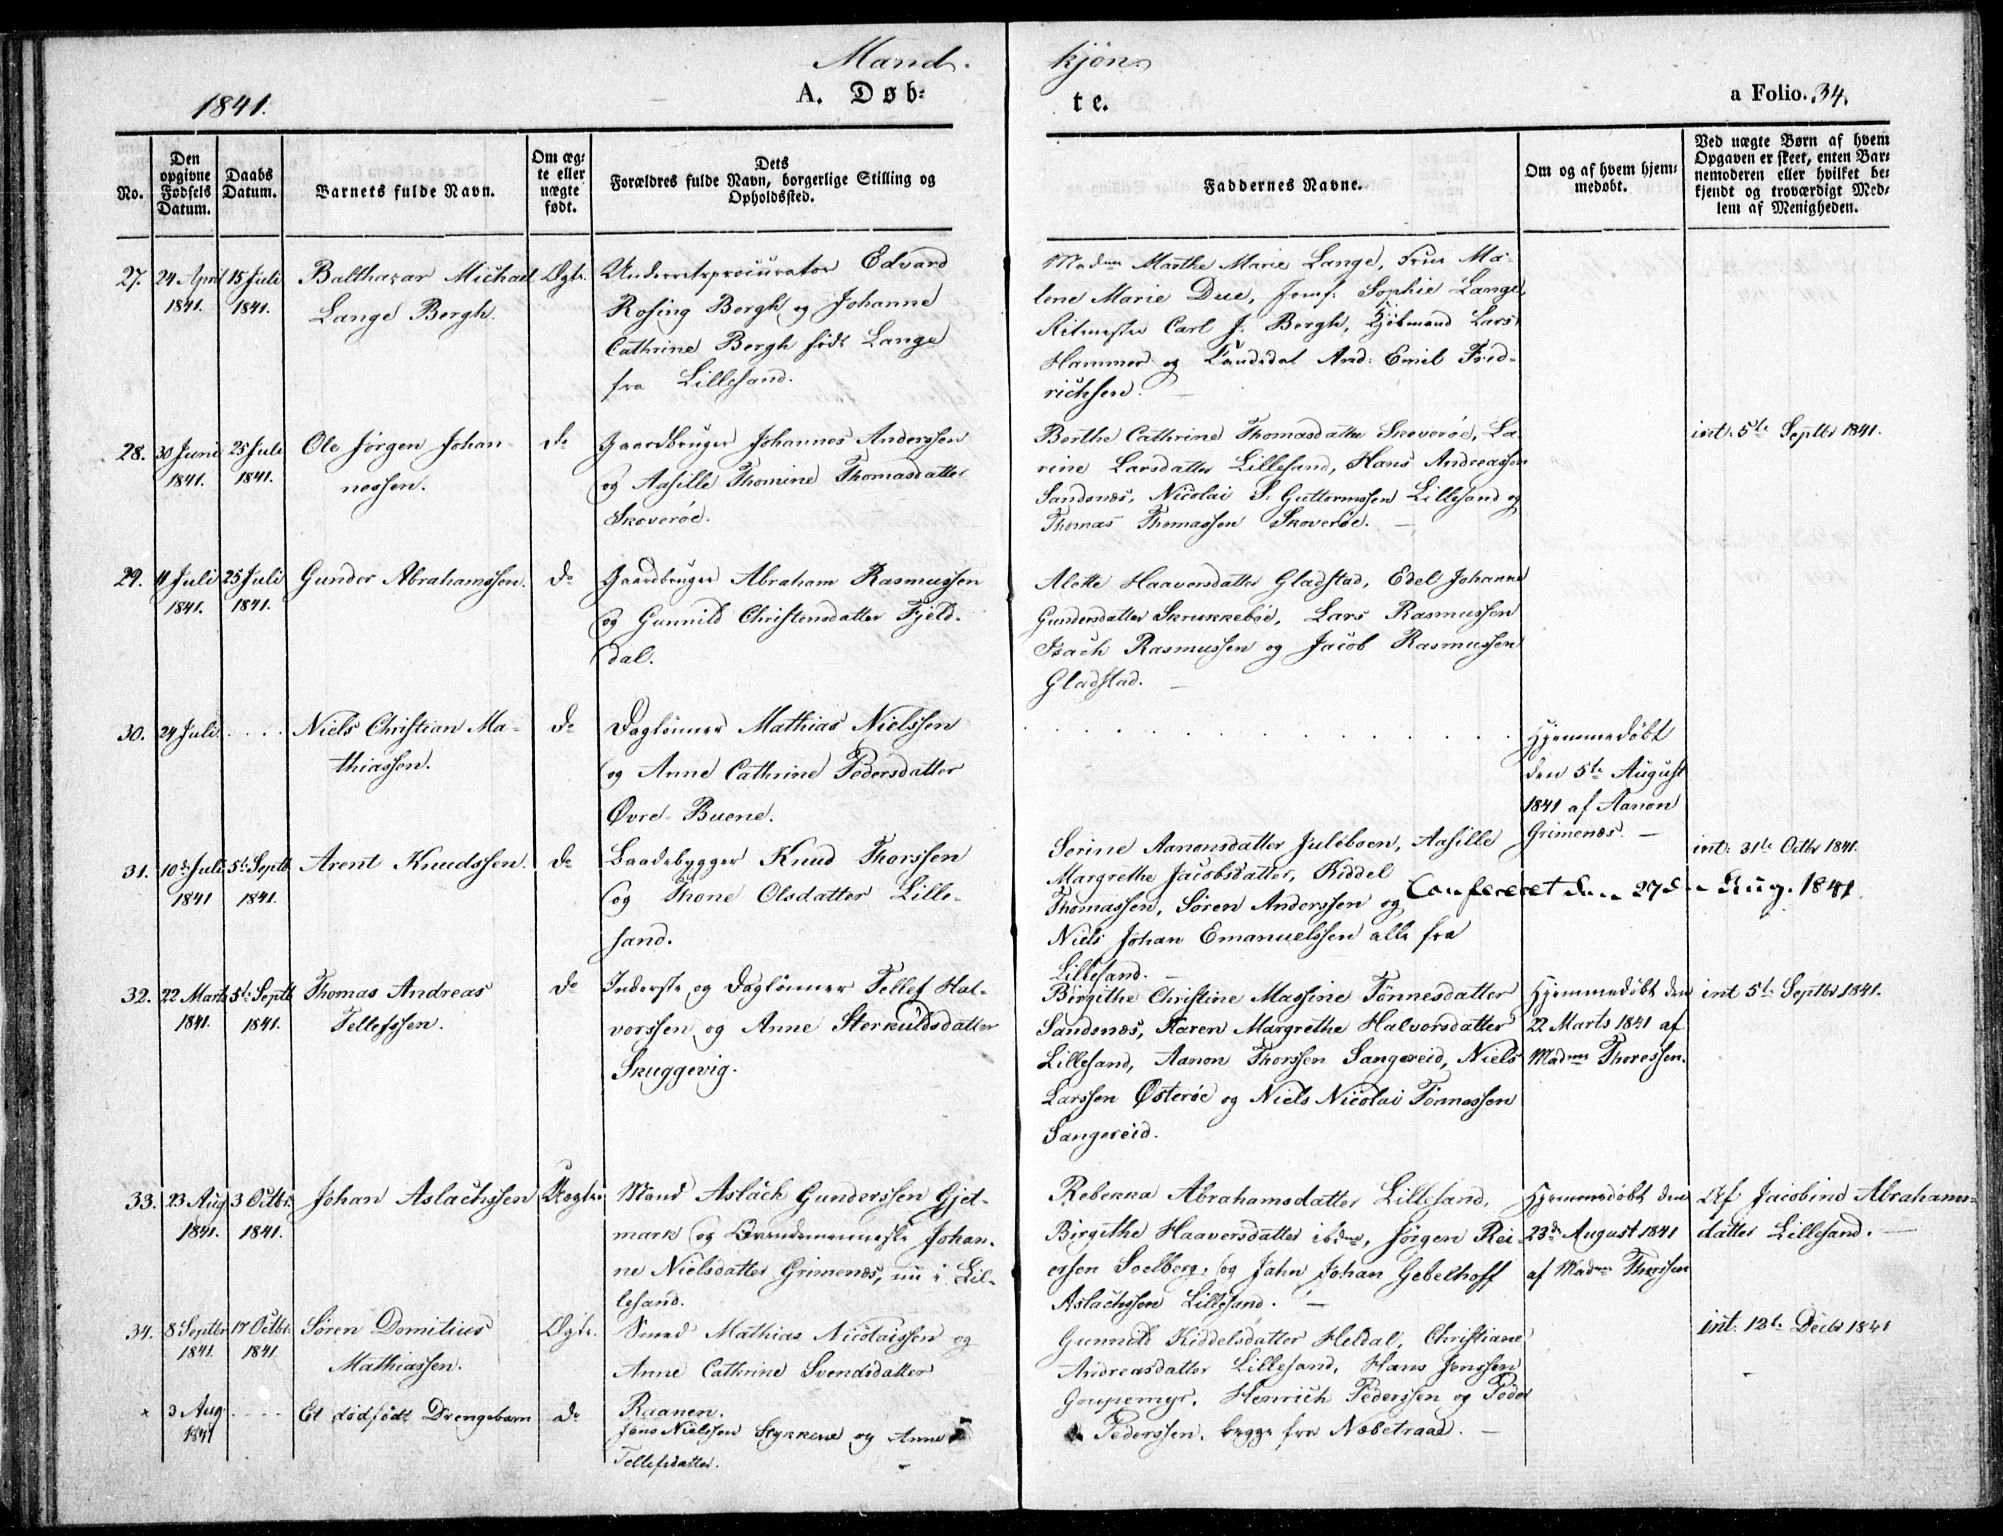 Mand-
kjøn.
1841.
A. Døb-
te.
a Folio. 34.
No.
Den opgivne Fødsels Datum.
Daabs Datum.
Barnets fulde Navn.
Om ægte eller uægte født.
Dets Forældres fulde Navn, borgerlige Stilling og Opholdssted.
Faddernes Navne.
Om og af hvem hjemmedøbt.
Ved uægte Børn af hvem Opgaven er skeet, enten Barnemoderen eller hvilket bekjendt og troværdigt Medlem af Menigheden.
27. 24 April 15 Juli Balthazar Michael Ægte Underretsprocurator Edvard
1841. 1841. Lange Bergh. Rosing Bergh og Johanne
Cathrine Bergh født Lange
fra Lillesand.
Madme Marthe Marie Lange, Frue Ma-
lene Marie Due, Jomf: Sophie Lange,
Ritmester Carl J. Bergh, Kjøbmand Lars
Hammer og Candidat And: Emil Fried-
richsen. —
28. 30 Juni 25 Juli Ole Jørgen Johan- do Gaardbruger Johannes Anderssen
1841. 1841. nessen. og Aasille Thomine Thomasdatter
Skoverøe.
Berthe Cathrine Thomasdatter Skoverøe, La-
rine Larsdatter Lillesand, Hans Andreassen
Sandsnæs, Nicolai S. Guttormssen Lillesand og
Thomas Thomassen Skoverøe. —
int: 5te Septbr 1841.
29. 11 Juli 25 Juli Gunder Abrahamssen. do Gaardbruger Abraham Rasmussen
1841. 1841. og Gunnild Christensdatter Fjeld-
dal.
Alette Haaversdatter Gladstad, Edel Johanne
Gundersdatter Skrukkebøe, Lars Rasmussen
Isach Rasmussen og Jacob Rasmussen
Gladstad. —
30. 24 Juli . . . . Niels Christian Ma- do Daglønner Mathias Nielssen
thiassen. og Anne Cathrine Pedersdatter
Øvre Buene.
Hjemmedøbt
den 5te August
1841 af Aanon
Grimenæs. —
31. 10de Juli 5te Septb. Arent Knudssen. do Baadebygger Knud Thorssen
1841 1841. og Thone Olsdatter Lille-
sand.
Serine Aanonsdatter Juleboen, Aasille
Margrethe Jacobsdatter, Kiddel
Thomassen, Søren Anderssen og
Niels Johan Emanuelssen alle fra
Lillesand. —
int: 31te Octbr 1841.
Confereret den 27de Aug. 1841.
32. 22 Marts 5te Septb Thomas Andreas do Inderste og Daglønner Tellef Hal-
1841. 1841. Tellefssen. vorssen og Anne Sterkuldsdatter
Skuggevig.
Birgithe Christine Massine Tønnesdatter
Sandsnæs, Karen Margrethe Halvorsdatter
Lillesand, Aanon Thorssen Sangereid, Niels
Larssen Østerøe og Niels Nicolai Tønnessen
Sangereid.
Hjemmedøbt den
22 Marts 1841 af
Madme Thoressen.
int 5te Septbr 1841.
33. 23 Aug 3 Octbr. Johan Aslachssen Uægte Mand Aslach Gunderssen Gjet-
1841. 1841. mark og Qvindemenneske Johan-
ne Nielsdatter Grimenæs, nu i Lil-
lesand.
Rebekka Abrahamsdatter Lillesand,
Birgithe Haaversdatter ibdm, Jørgen Rei-
ersen Soelberg, og Jahn Johan Gebelhoff
Aslachssen Lillesand. —
Hjemmedøbt den
23de August 1841
af Madme Thorssen
Af Jacobine Abrahams-
datter Lillesand. —
34. 8 Septbr 17 Octbr. Søren Domitius Ægte. Smed Mathias Nicolaissen og
1841. 1841 Mathiassen. Anne Cathrine Svendsdatter
Raanen.
Gunnild Kiddelsdatter Heldal, Christiane
Andreasdatter Lillesand, Hans Jenssen
Goupemyr, Henrich Pederssen og Peder
Pederssen, begge fra Næbetraae. —
int. 12te Decbr 1841
x 3 Aug . . . . Et dødfødt Drengebarn do Jens Nielssen Stykkene og Anne
1841 Tellefsdatter.